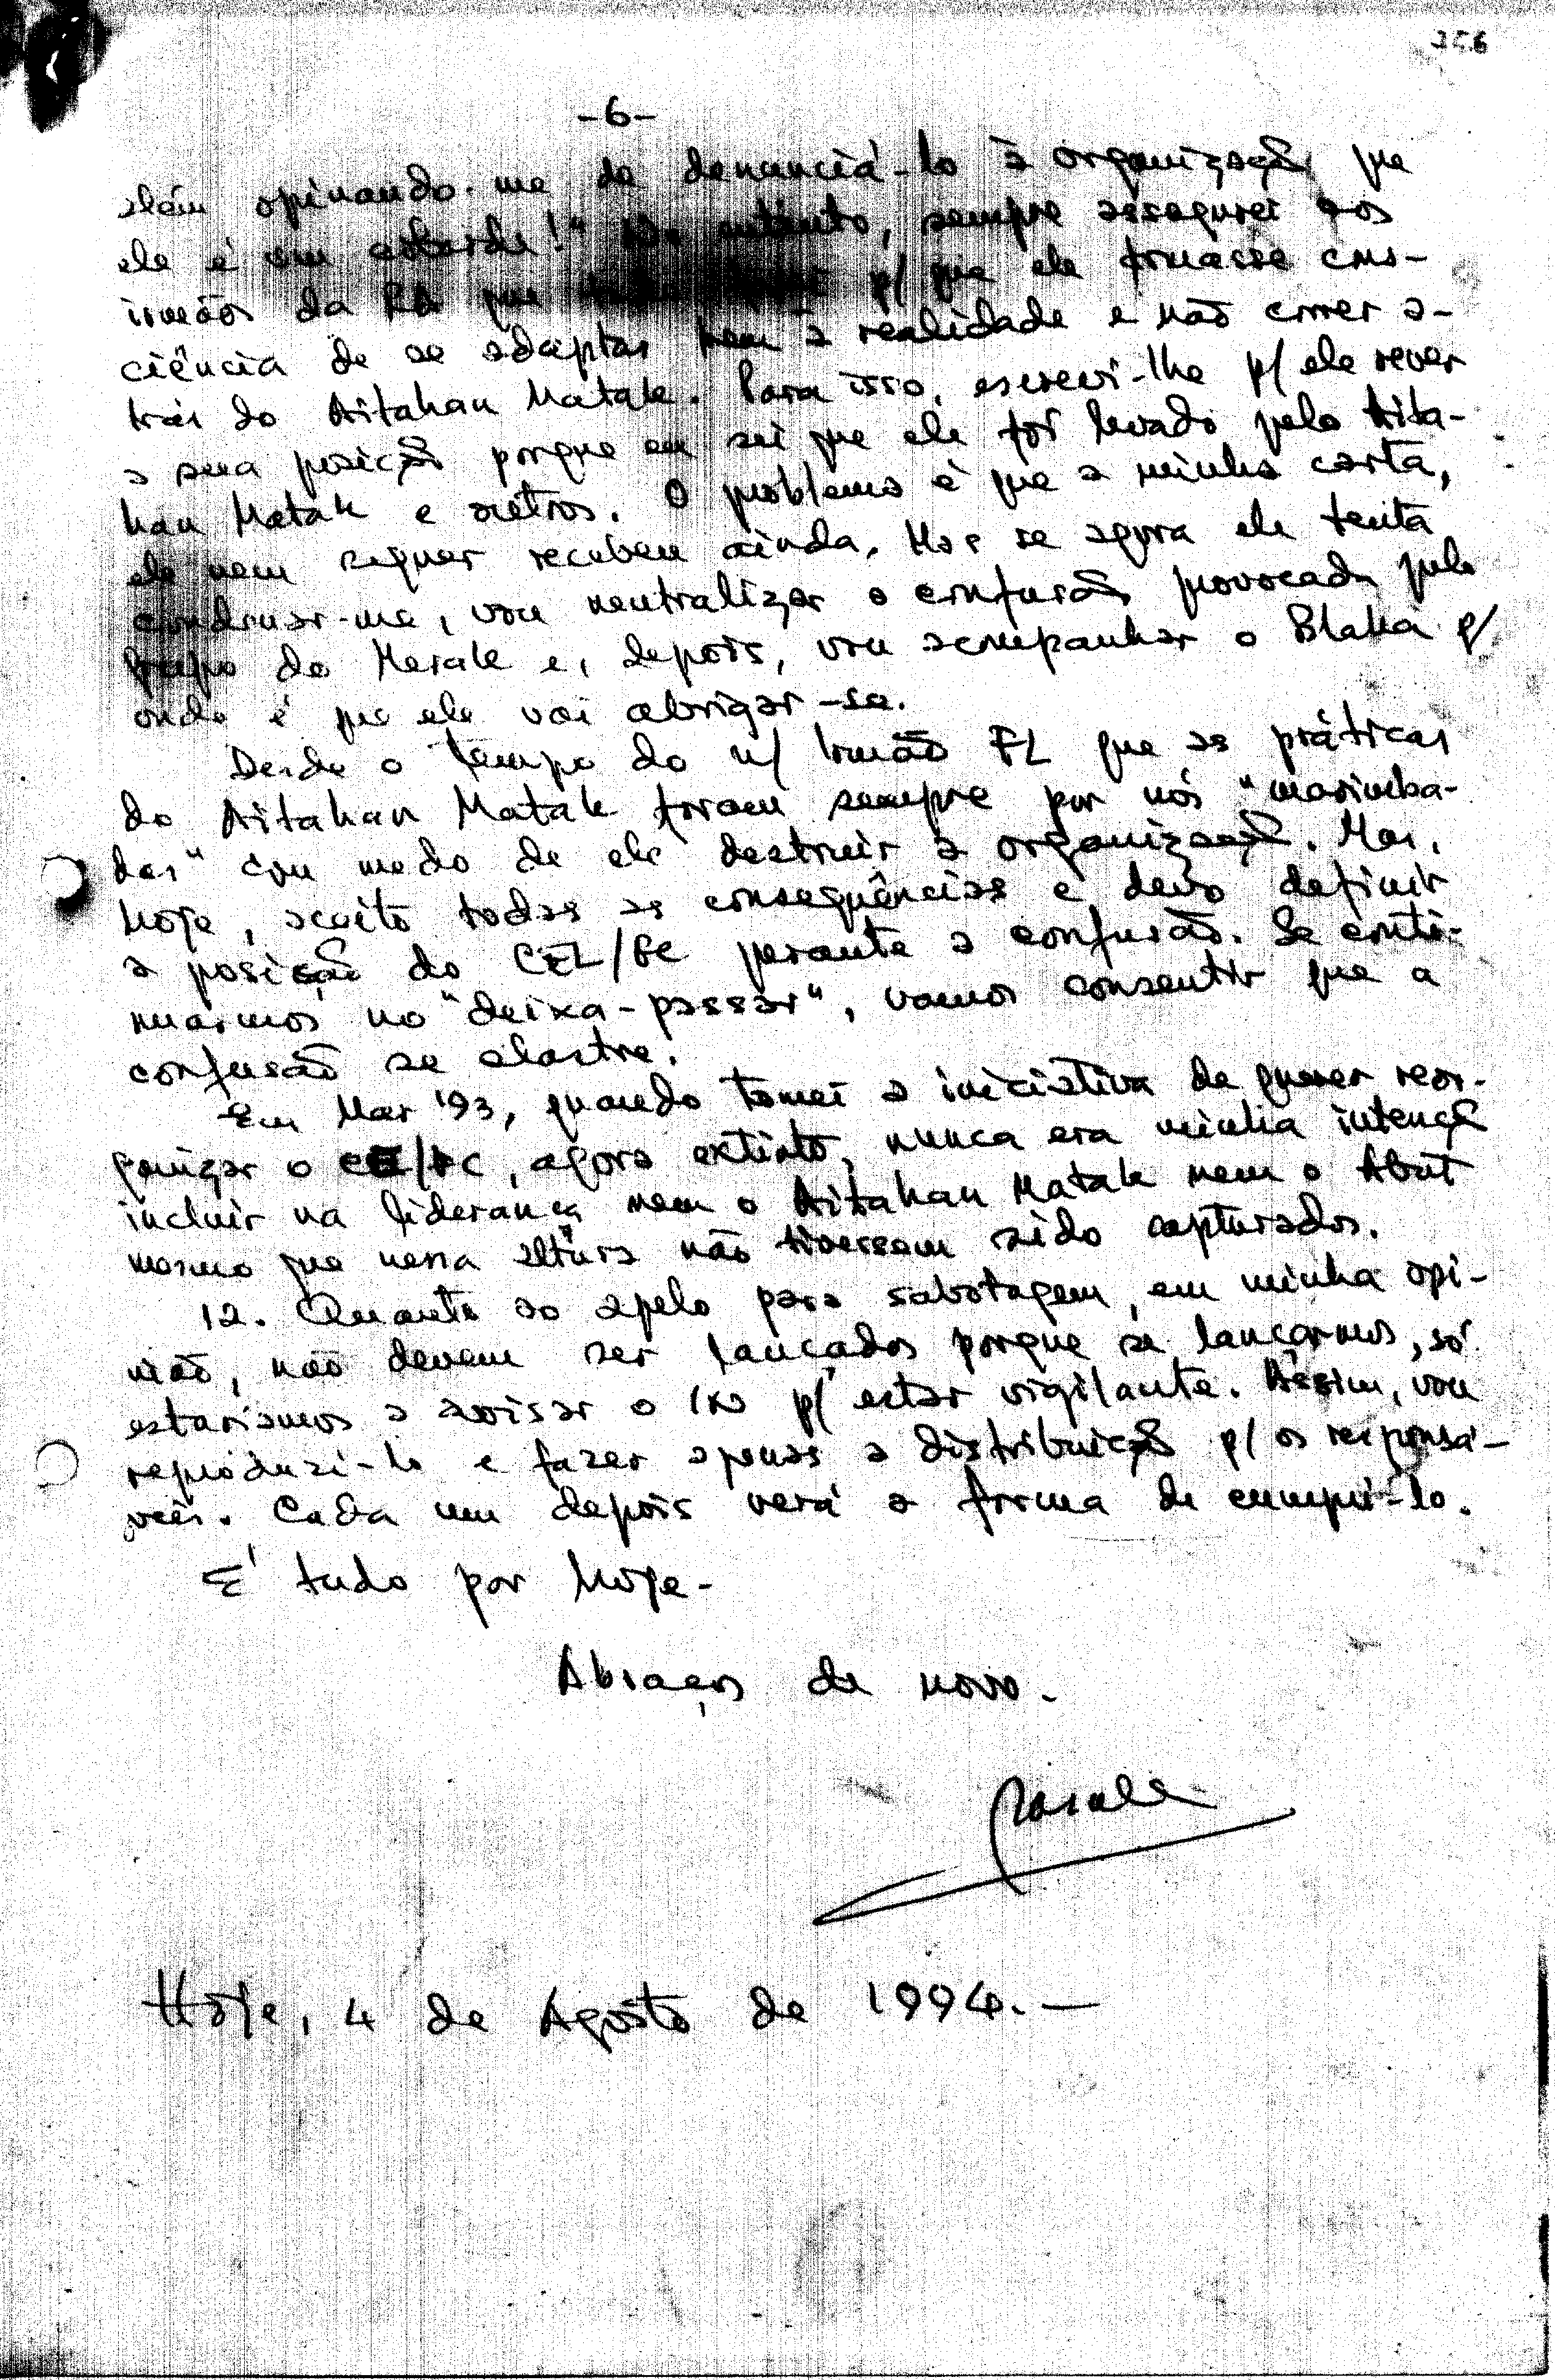 -6-
além opinando-me de denunciá-lo à organização que
ele é um cobarde!" No entanto, sempre assegurei aos
irmãos da RA que p/ que ele tomasse cons-
ciência de se adaptar bem à realidade e não correr a-
trás do Aitahan Matak. Para isso, escrevi-lhe p/ ele rever
a sua posição porque eu sei que ele foi levado pelo Aita-
han Matak e outros. O problema é que a minha carta,
ele nem sequer recebeu ainda. Mas se agora ele tenta
condenar-me, vou neutralizar a confusão provocada pelo
grupo do e, depois, vou acompanhar o p/
onde é que ele vai abrigar-se.
Desde o tempo do n/ Irmão FL que as práticas
do Aitahan Matak foram sempre por nós "marimba-
das" com medo de ele destruir a organização. Mas,
hoje, aceito todas as consequências e devo definir
a posição do CEL/FC perante a confusão. Se conti-
nuarmos no "deixa-passar", vamos consentir que a
confusão se alastre.
Em Mar '93, quando tomei a iniciativa de querer reor-
ganizar o , agora extinto, nunca era minha intenção
incluir na liderança nem o Aitahan Matak nem o Abut
mesmo que nessa altura não tivessem sido capturados.
12. Quanto ao apelo para sabotagem, em minha opi-
nião, não devem ser lançados porque se lançarmos, só
estaríamos a avisar o IN p/ estar vigilante. Assim, vou
reproduzi-lo e fazer apenas a distribuição p/ os responsá-
veis. Cada um depois verá a forma de cumpri-lo.
É tudo por hoje-
Abraços de novo.
Hoje, 4 de Agosto de 1994.-